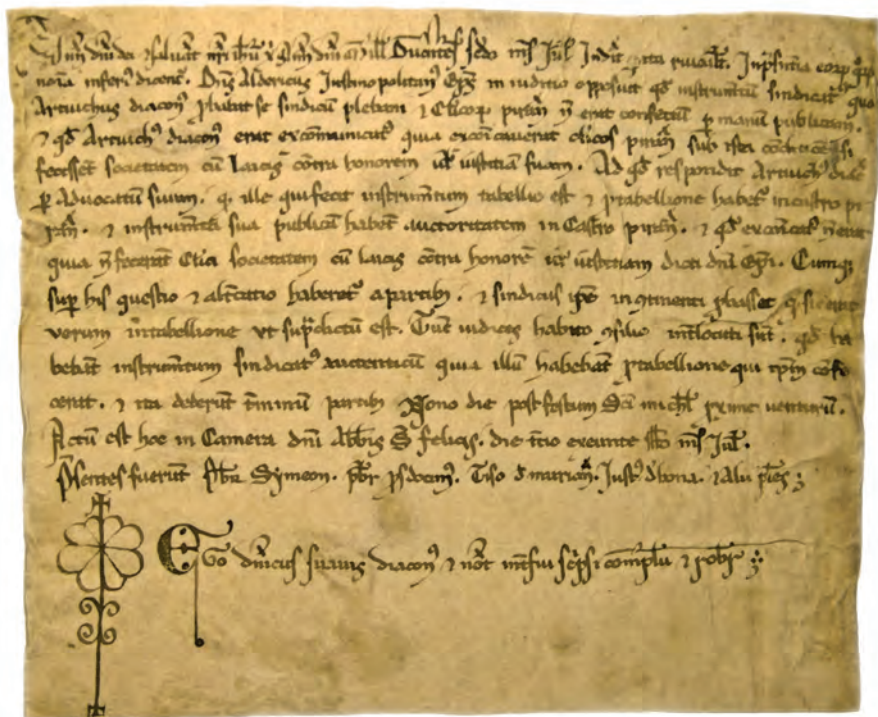 dn̄i dei & saluat n̄ri ih̄u x Ann dn̄i Ducentes sc̄do ms̄ Jul Indic̄ Inp̄sentia
noīa inferi9 dicent. Dn̄s Aldericus Justinopolitan9 Ep̄s in iuditio opposuit qđ instrumētū sindicat9 quo
Artuichus diacon9 p̄babat se sindicū plebani & Clīcoꝝ piran̄ n̄ erat confectū p manū publicam.
& qđ Artuich9 diacon9 erat exco͞municat9 quia exco͞icauerat clīcos piran̄ sub si
fecissēt societatem cū laicis cōtra honorem ul̄ iustitiam suam. Ad qđ respondit Artuich9 diac̄
p Aduocatum suum. q. ille qui fecit instrumētum tabellio est & p tabellione habet᷑ in castro pi
ran̄. & instrumēta sua publicā habēt auctoritatem in Castro piran̄. & qđ exco͞icat9 n̄ erat
quia n̄ fecerāt Clīci societatem cū laicis cōtra honorē ul̄ iustitiam dicti dn̄i Ep̄i. Cumq;
sup̄ his questio & alt̄catio haberet᷑ a partib9. & sindicus ip̄e in 9tinenti p̄basset q. sic erat
uerum in tabellione ut sup̄dictū est. Tūc iudices habito 9silio int̄locuti sūt. qđ ha
bebāt instrumētum sindicat9 autenticū quia illū habebāt p tabellione qui ip̄m cōfe
cerat. & ita dederūt t̄minum partib9 Nono die post festum Sc̄i Mich̄l p̄xime uenturū.
Actū est hoc in Camera dn̄i Abb̄is S̄ felicis. die t̄cio exeunte ms̄ Jul̄.
P̄sentes fuerūt Pb̄r Symeon. pb̄r Tiso đ Just9 đ bona. & Alii p̄les
Ego dn̄icus suauis diacon9 & not̄ int̄fui sc̄psi co͞mpleui & robr̄